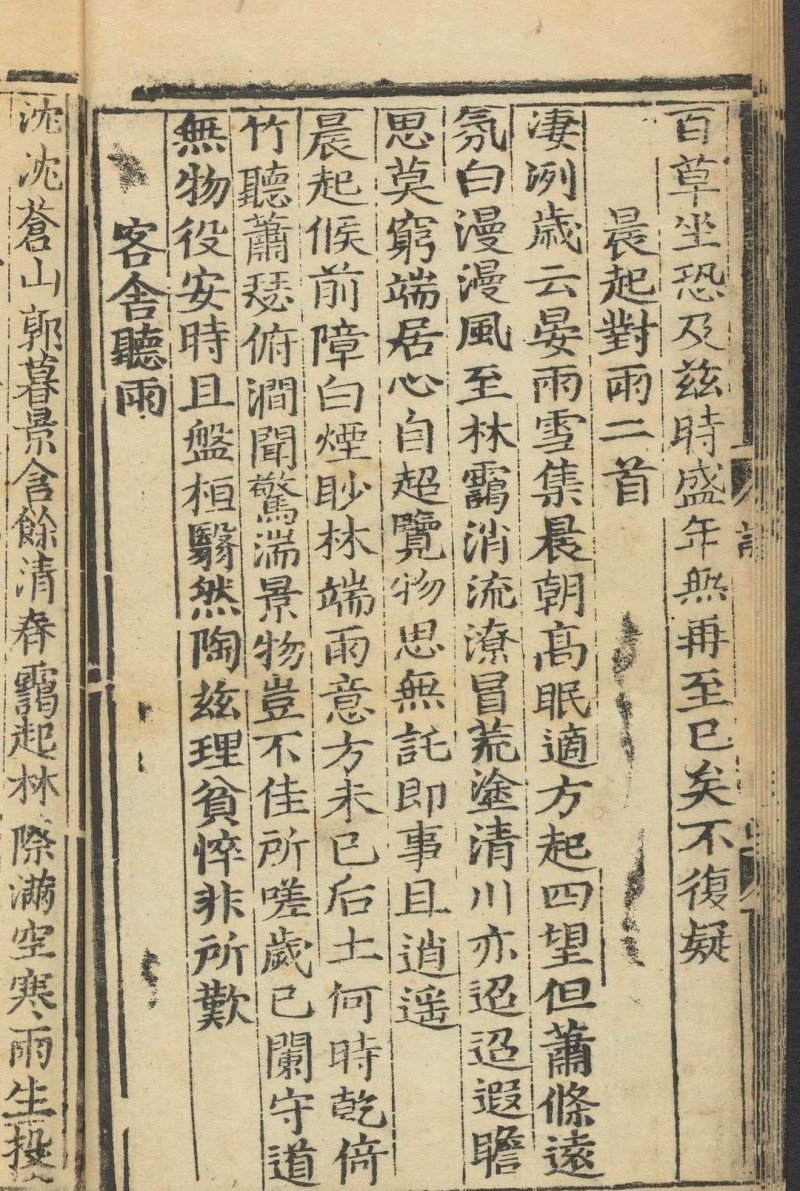 百草坐恐及玆時盛年無再至已矣不復疑
晨起對雨二首
淒冽歲云晏雨雪集晨朝高眠適方起四望但蕭條遠
氛白漫漫風至林靄消流潦冒荒塗清川亦迢迢遐瞻
思莫窮端居心自超覽物思無託即事且逍遥
晨起候前障白煙眇林端雨意方未已后土何時乾倚
竹聽蕭瑟俯澗聞驚湍景物豈不佳所嗟歲已闌守道
無物役安時且盤桓翳然陶玆理貧悴非所歎
客舍聽雨
沈沈蒼山郭暮景含餘清春靄起林際滿空寒雨生投